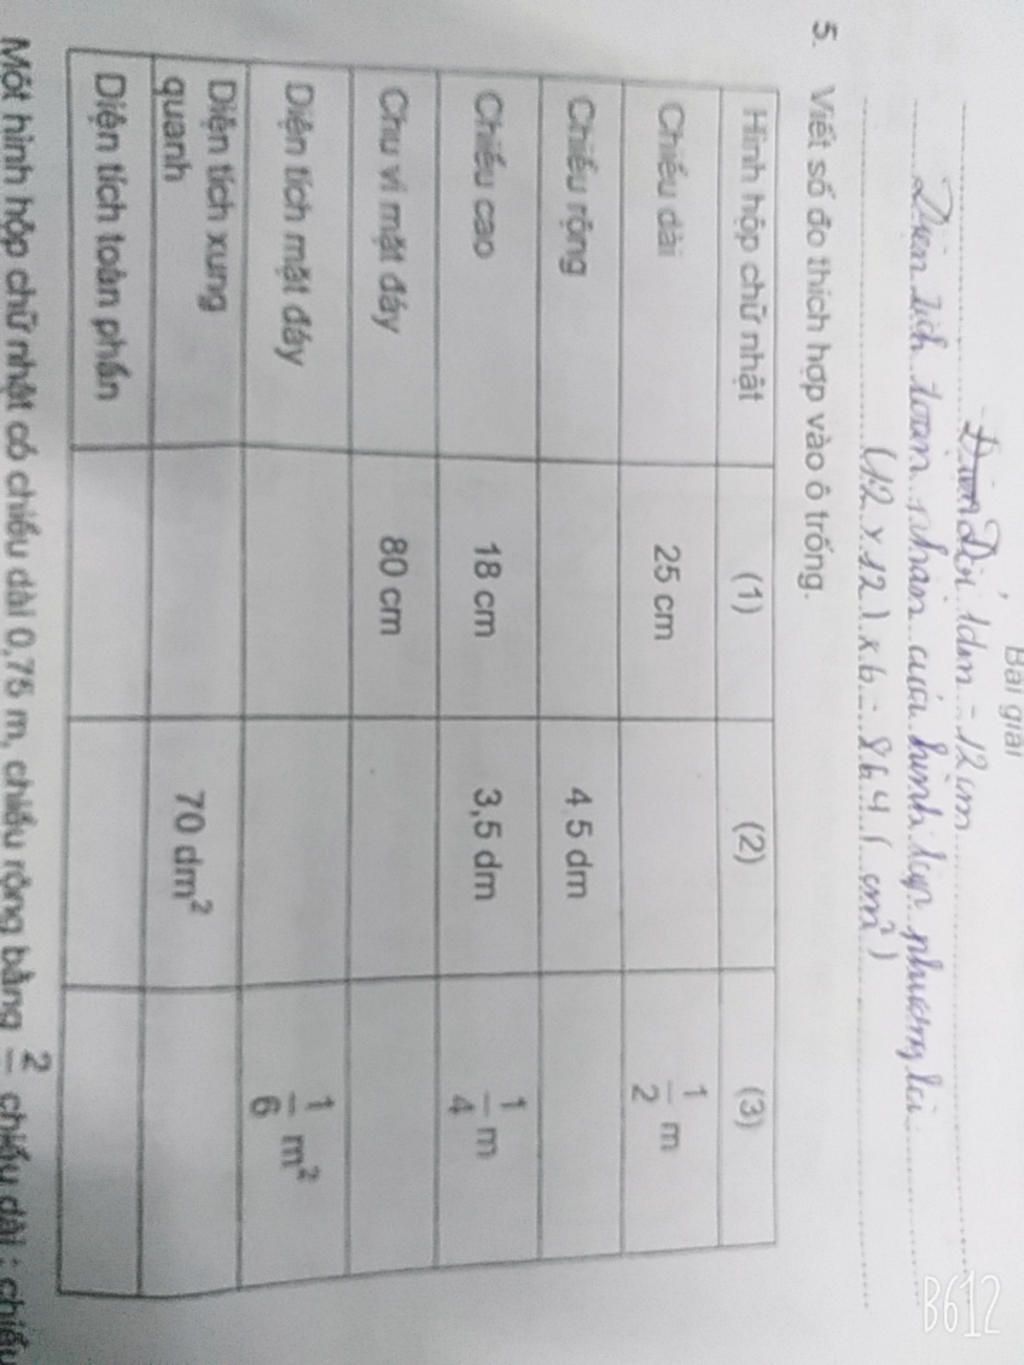 Bài giải
Đổi 1dm = 12 cm
Diện tích toàn phần của hình lập phương là
(12 x 12) x 6 = 864 (cm²)
5. Viết số đo thích hợp vào ô trống.
Hình hộp chữ nhật (1) (2) (3)
Chiều dài 25 cm 1/2 m
Chiều rộng 4,5 dm
Chiều cao 18 cm 3,5 dm 1/4 m
Chu vi mặt đáy 80 cm
Diện tích mặt đáy 1/6 m²
Diện tích xung
quanh 70 dm²
Diện tích toàn phần
Một hình hộp chữ nhật có chiều dài 0,75 m, chiều rộng bằng 2 chiều dài ; chiều
B612